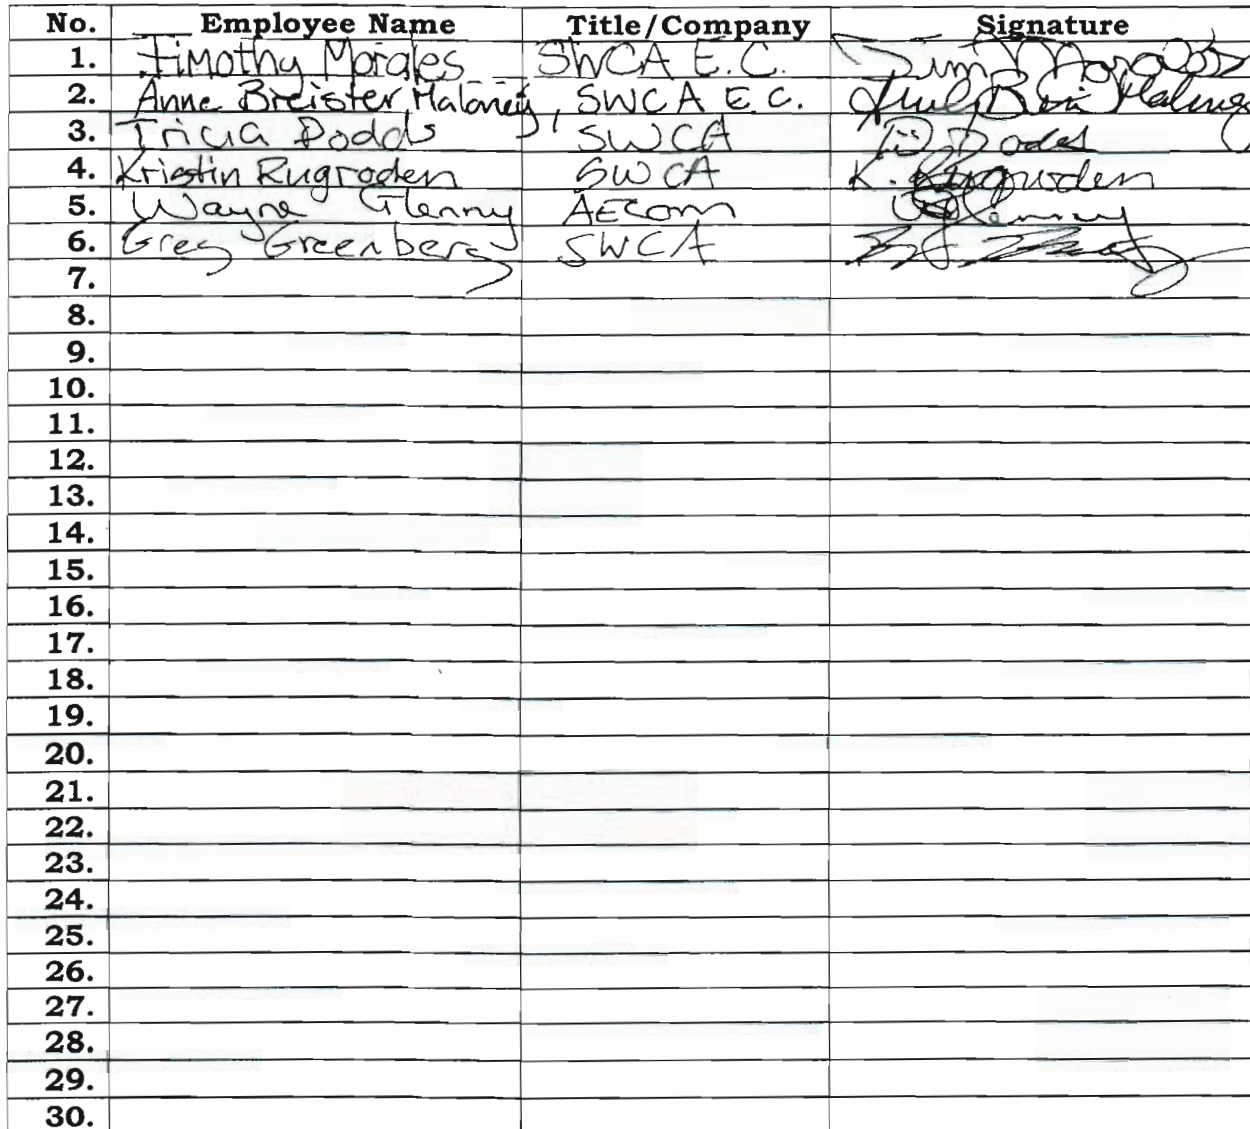 No. Employee Name Title/Company Signature
1. Timothy Morales SWCA E.C. Tim Morales
2. Anne Breister Maloney, SWCA E.C. Maloney
3. Tricia Dodds SWCA Dodds
4. Kristin Rugroden SWCA K. Rugroden
5. Wayne Glenny AECom Glenny
6. Greg Greenberg SWCA
7.
8.
9.
10.
11.
12.
13.
14.
15.
16.
17.
18.
19.
20.
21.
22.
23.
24.
25.
26.
27.
28.
29.
30.